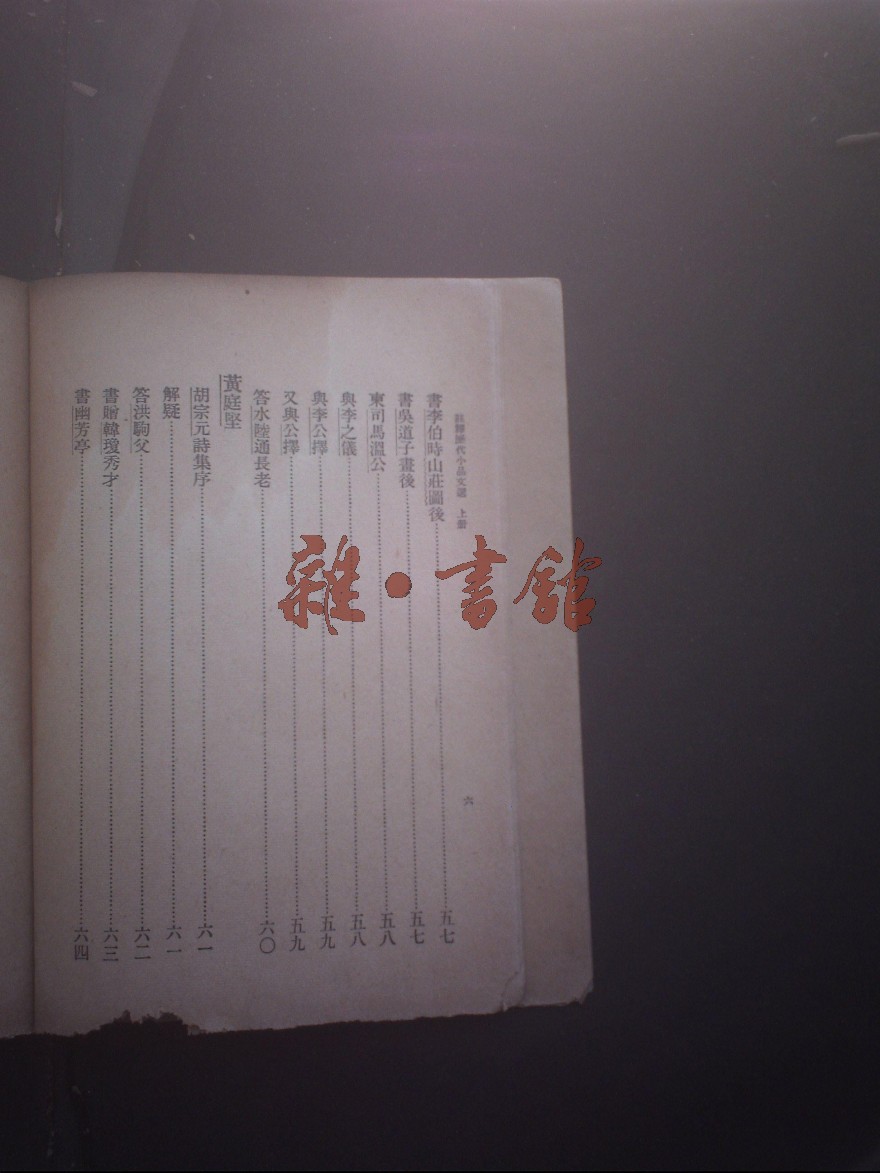 註釋歷代小品文選 上册
六
書李伯時山莊圖後……五七
書吳道子畫後……五七
柬司馬溫公……五八
與李之儀……五八
與李公擇……五九
又與公擇……五九
答水陸通長老……六〇
黃庭堅
胡宗元詩集序……六一
解疑……六一
答洪駒父……六二
書贈韓瓊秀才……六三
書幽芳亭……六四
雜·書館